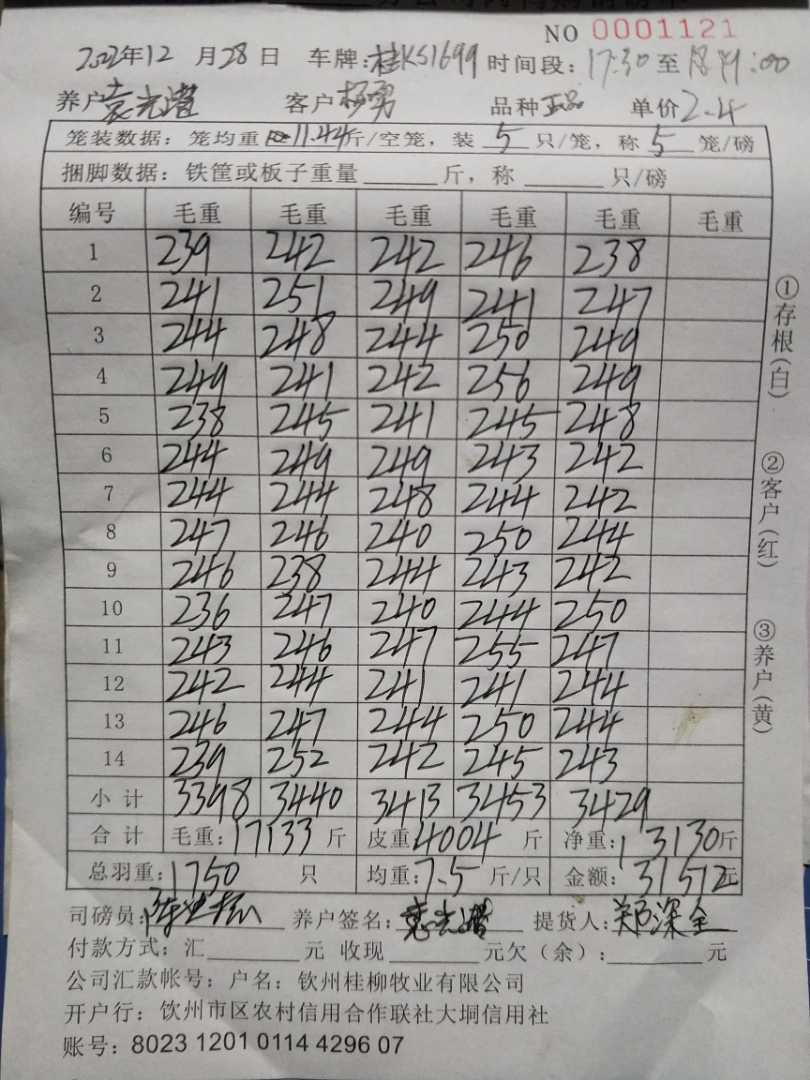 NO 0001121
2022年12月28日 车牌:桂KS1699 时间段:17:30至
养户袁光潜 客户杨勇 品种正品 单价2.4
笼装数据:笼均重11.44斤/空笼,装5只/笼,称5笼/磅
捆脚数据:铁筐或板子重量____斤,称____只/磅
编号 毛重 毛重 毛重 毛重 毛重 毛重
1 239 242 242 246 238
2 241 251 249 241 247
3 244 248 244 250 249
4 249 241 242 256 249
5 238 245 241 245 248
6 244 249 249 243 242
7 244 244 248 244 242
8 247 246 240 250 244
9 246 238 244 243 242
10 236 247 240 244 250
11 243 246 247 255 247
12 242 244 241 241 244
13 246 247 244 250 244
14 239 252 242 245 243
小计 3398 3440 3413 3453 3429
合计 毛重:17133斤 皮重4004斤 净重:13130斤
总羽重:1750只 均重:7.5斤/只 金额:31512元
司磅员: 养户签名:袁光潜 提货人:郑深全
付款方式:汇____元 收现____元欠(余):____元
公司汇款帐号:户名:钦州桂柳牧业有限公司
开户行:饮州市区农村信用合作联社大垌信用社
账号:8023 1201 0114 4296 07
①存根(白)
②客户(红)
③养户(黄)